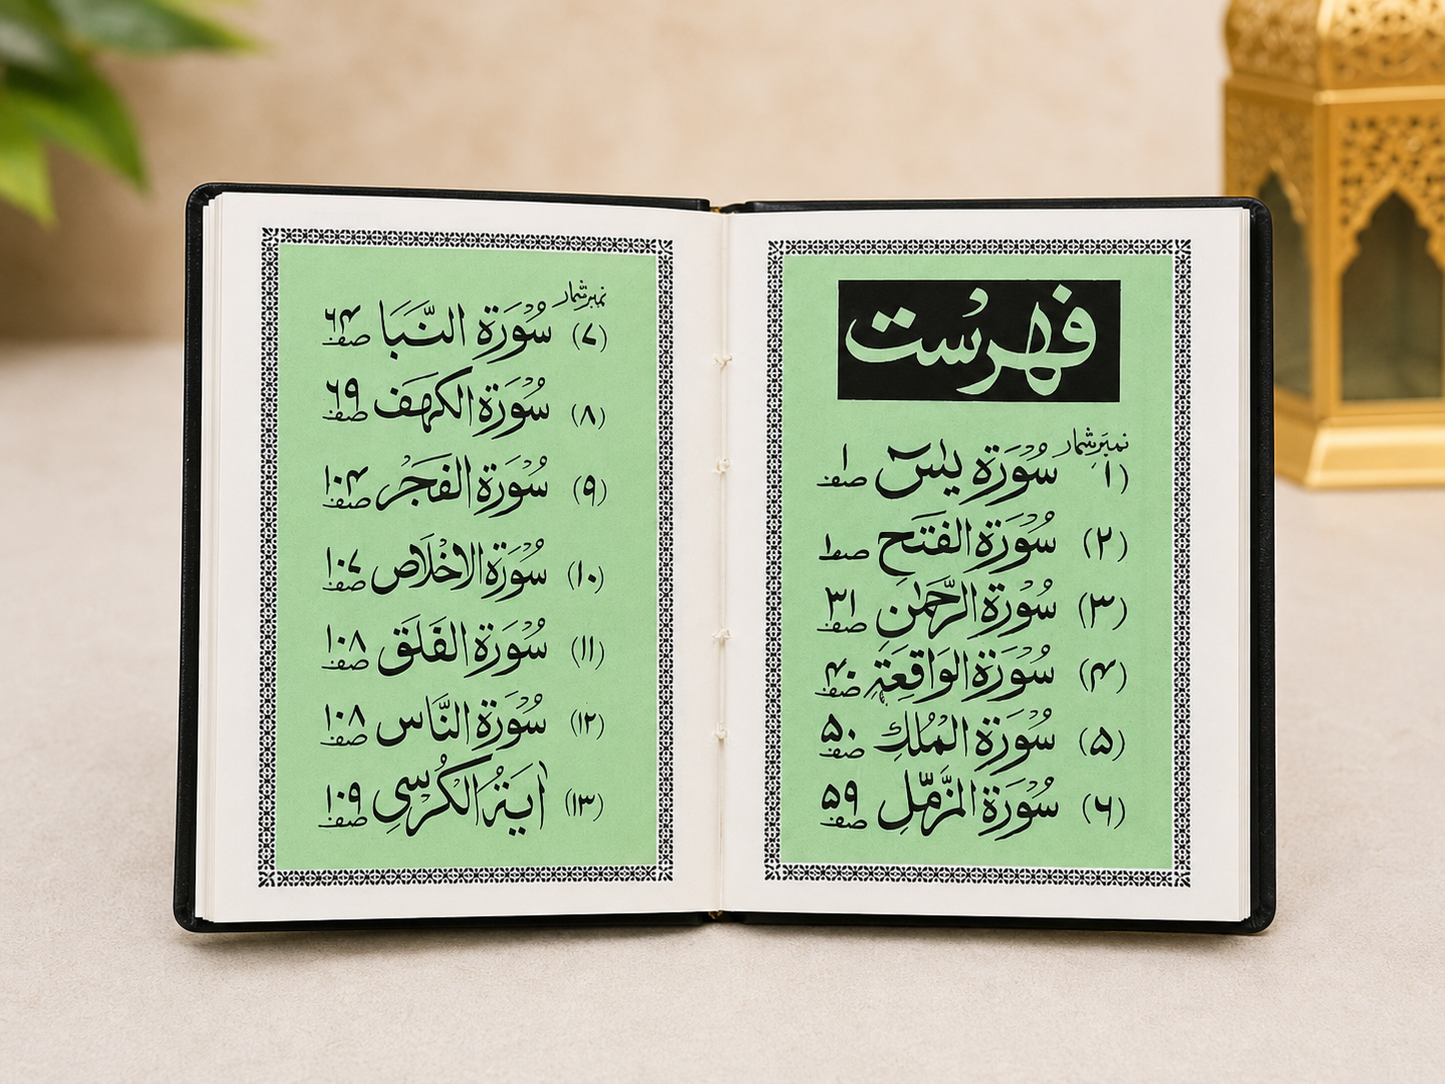 فہرست
نمبر شمار
(۱) سُوۡرَۃ یٰسٓ صفہ ۱
(۲) سُوۡرَۃ الفَتۡح
(۳) سُوۡرَۃ الرَّحۡمٰن صفہ ۳۱
(۴) سُوۡرَۃ الوَاقِعَۃ صفہ ۴۰
(۵) سُوۡرَۃ المُلۡك صفہ ۵۰
(۶) سُوۡرَۃ المُزَّمِّل صفہ ۵۹
نمبر شمار
(۷) سُوۡرَۃ النَّبَا صفہ ۶۴
(۸) سُوۡرَۃ الکَہَف صفہ ۶۹
(۹) سُوۡرَۃ الفَجۡر صفہ ۱۰۴
(۱۰) سُوۡرَۃ الاخۡلَاص صفہ ۱۰۷
(۱۱) سُوۡرَۃ الفَلَق صفہ ۱۰۸
(۱۲) سُوۡرَۃ النَّاس صفہ ۱۰۸
(۱۳) اٰیَۃُ الکُرۡسِی صفہ ۱۰۹